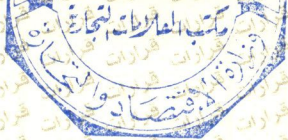 مكتب العلاقات التجارية
وزارة الاقتصاد والتجارة
قرارات قرارات قرارات